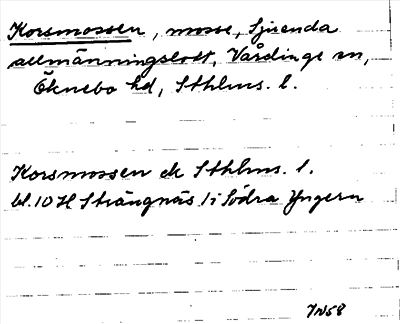 Korsmossen, mosse, Sjuenda
allmänningslott, Vårdinge sn,
Öknebo hd, Sthlms. l.
Korsmossen ek Sthlms. l.
bl. 10 H Strängnäs 1i Södra Yngern